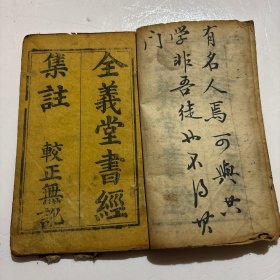 有名人焉可與共
學非吾徒也不得共
門
全義堂書經
集註
較正無訛